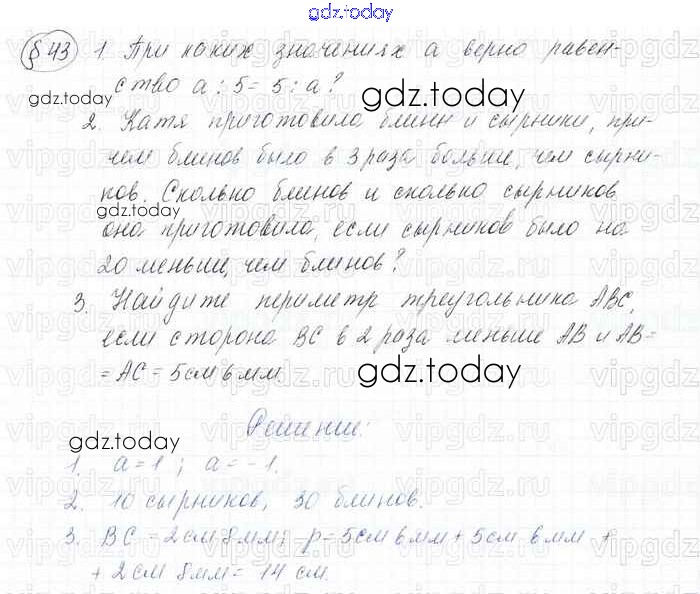 gdz.today
§ 43 1 При каких значениях а верно равен-
ство а : 5 = 5 : а?
gdz.today
gdz.today
2. Катя приготовила блины и сырники, при-
чем блинов было в 3 раза больше, чем сырни-
ков. Сколько блинов и сколько сырников
gdz.today
она приготовила, если сырников было на
20 меньше, чем блинов?
3. Найдите периметр треугольника АВС,
если сторона ВС в 2 раза меньше АВ и АВ=
= АС = 5 см 6 мм.
gdz.today
Решение:
gdz.today
1. а = 1 ; а = -1.
2. 10 сырников, 30 блинов.
3. ВС = 2 см 8 мм; р = 5 см 6 мм + 5 см 6 мм +
+ 2 см 8 мм = 14 см.